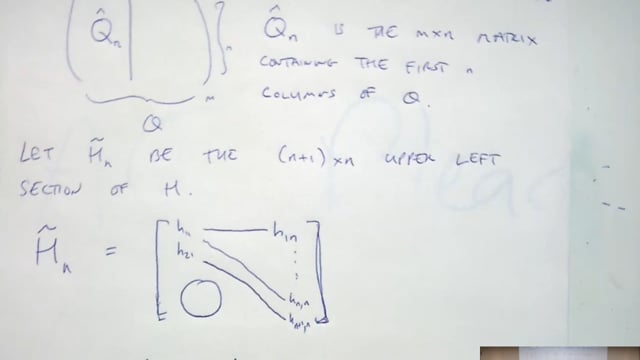 Q̂n Q̂n IS THE m×n MATRIX
CONTAINING THE FIRST n
m COLUMNS OF Q.
Q
LET H̃n BE THE (n+1)×n UPPER LEFT
SECTION OF H.
H̃n = [ h11 — h1n
h21 ⋮
hn,n
O hn+1,n ]